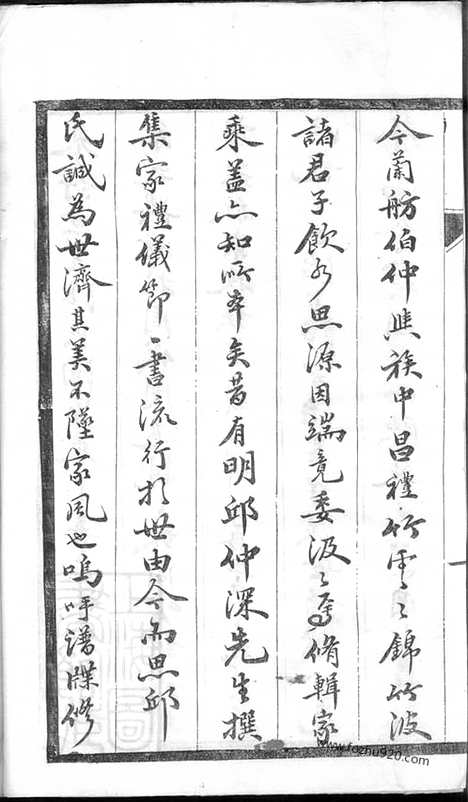 今蘭舫伯仲與族中昌禮竹雲雲錦竹波
諸君子飲水思源因端竟委汲汲焉脩輯家
乘蓋亦知所本矣昔有明邱仲深先生撰
集家禮儀節一書流行於世由今而思邱
氏誠為世濟其美不墜家風也嗚呼譜牒修
www.fozhu920.com